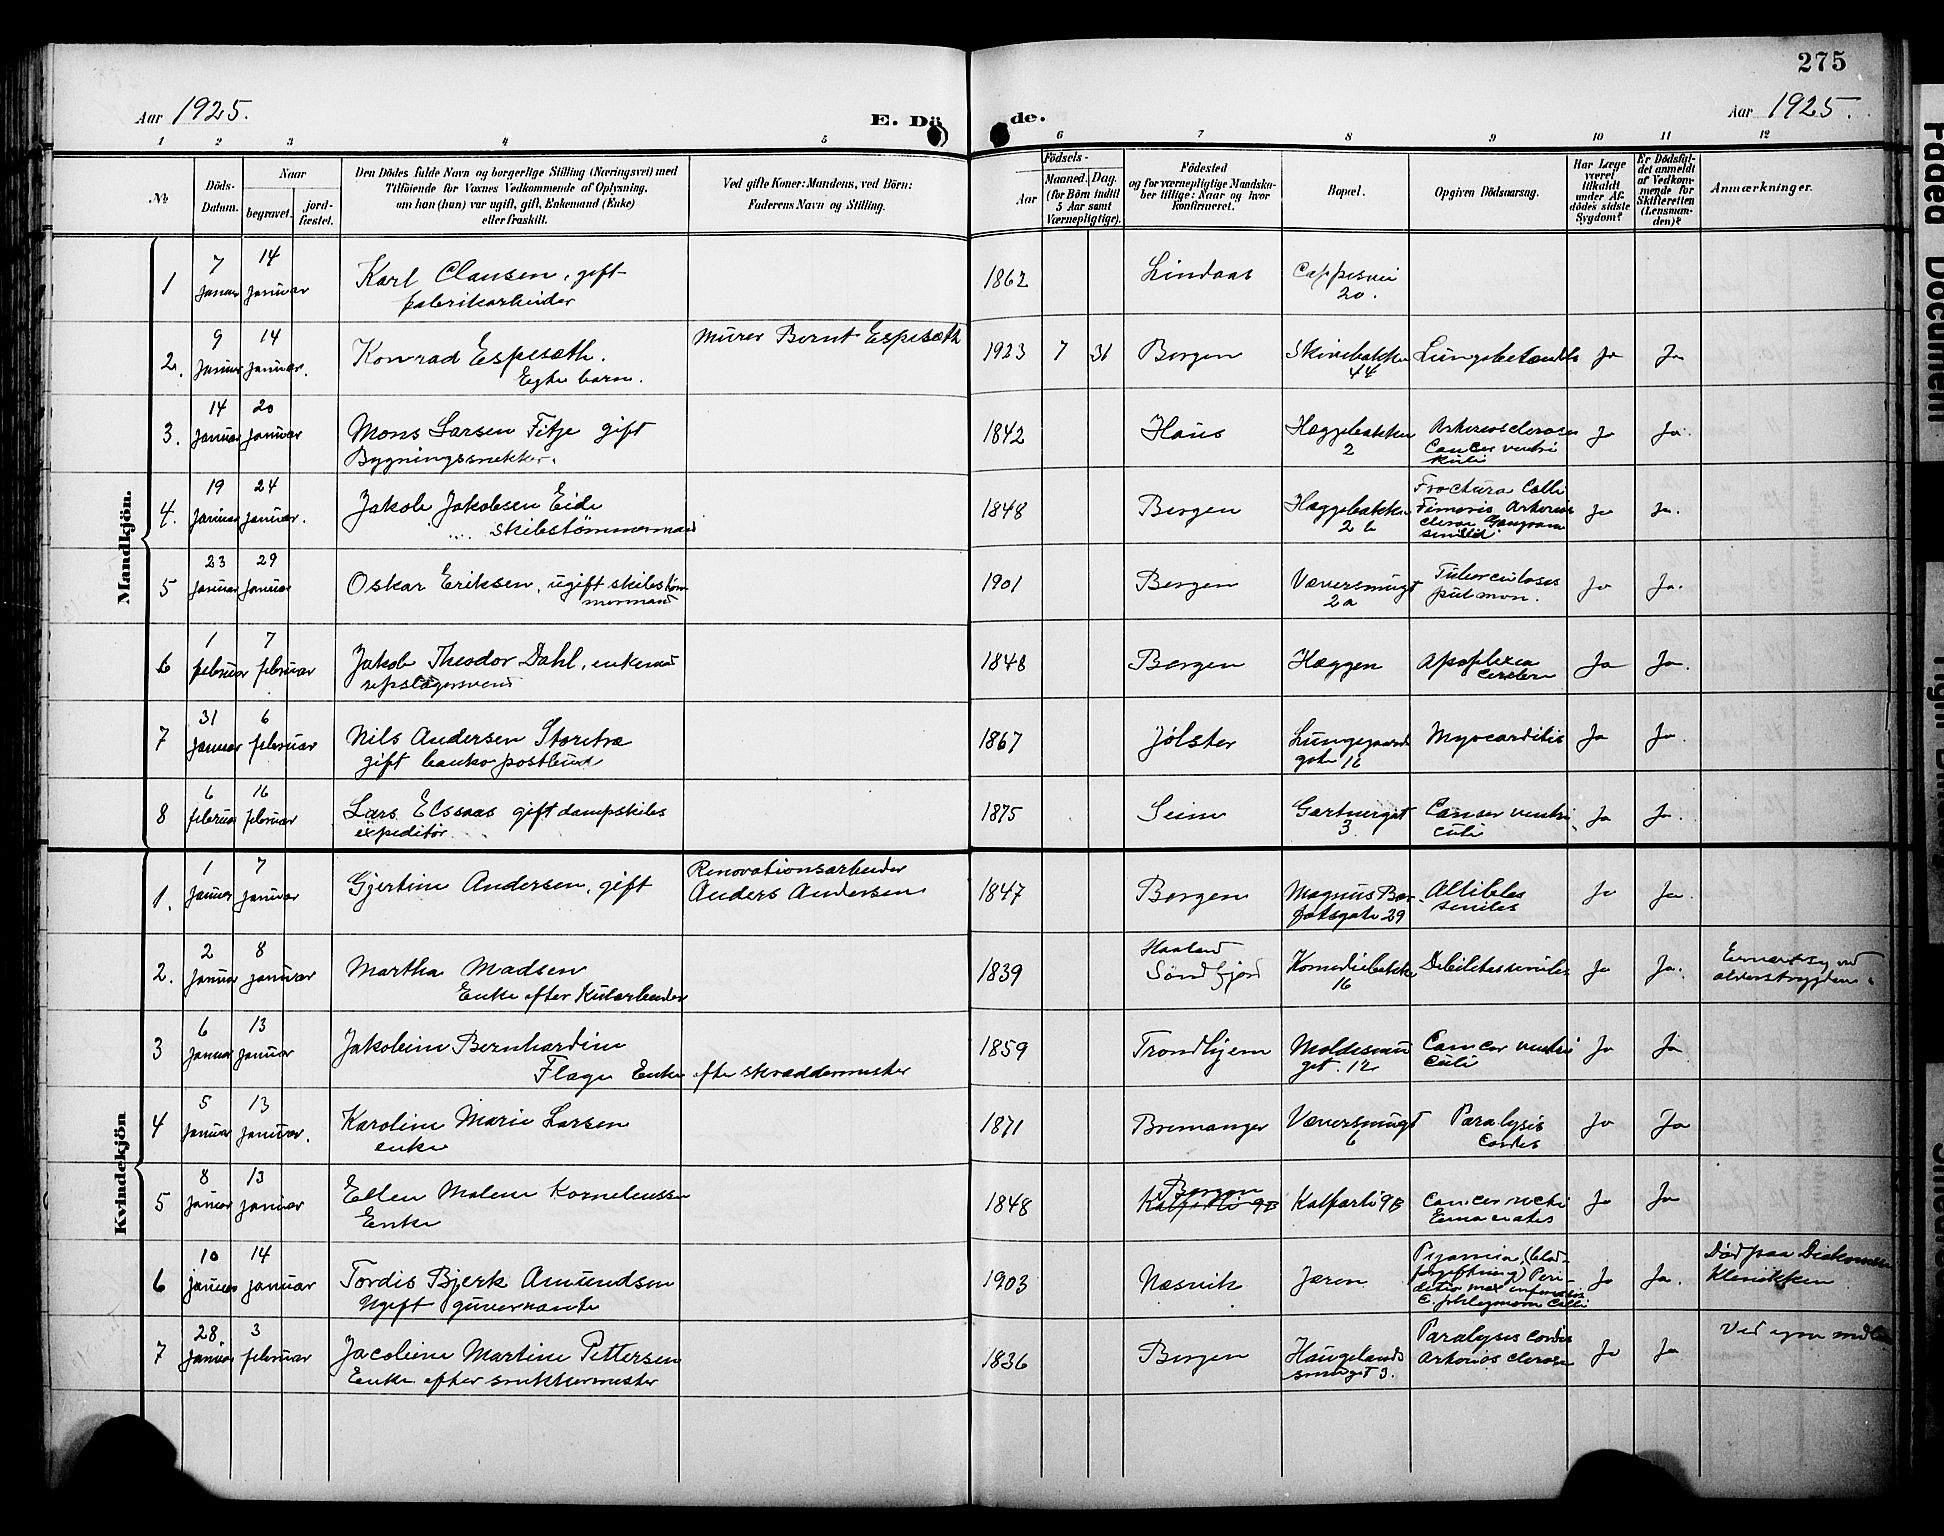 275
Aar 1925.
E. Dö de.
Aar 1925.
1 2 3 4 5 6 7 8 9 10 11 12
№
Döds-Datum.
Naar
begravet.
jord-fæstet.
Den Dödes fulde Navn og borgerlige Stilling (Næringsvei) med
Tilföiende for Voxnes Vedkommende af Oplysning,
om han (hun) var ugift, gift, Enkemand (Enke)
eller fraskilt.
Ved gifte Koner: Mandens, ved Börn:
Faderens Navn og Stilling.
Födsels-
Aar
Maaned. Dag.
(for Börn indtil
5 Aar samt
Værnepligtige).
Födested
og for værnepligtige Mandska-
ber tillige: Naar og hvor
konfirmeret.
Bopæl.
Opgiven Dödsaarsag.
Har Læge
været
tilkaldt
under Af-
dödes sidste
Sygdom?
Er Dödsfal-
det anmeldt
af Vedkom-
mende for
Skifteretten
(Lensman-
den)?
Anmærkninger.
Mandkjön.
1 7 Januar 14 Januar Karl Clausen, gift 1862 Lindaas
fabrikarbeider 20.
2. 9 Januar 14 Januar. Konrad Espesæth. Murer Bernt Espesæth 1923 7 31 Bergen Skivebakken Ja Ja
Egte barn. 44
3. 14 Januar 20 Januar Mons Larsen Fitje gift 1842 Haus Hæggebakken Arteriosclerose Ja Ja.
Bygningssnekker. 2 Cancer ventri
kuli
4. 19 Januar 24 Januar. Jakob Jakobsen Eide 1848 Bergen Hæggebakken Fractura Colli Ja Ja.
skibstømmermand 2 b Femoris Arterios
5 23 Januar 29 Januar Oskar Eriksen, ugift skibstøm 1901 Bergen Væversmugt Tuberculosis Ja Ja.
mermand 2a pulmon.
6 1 februar 7 februar Jakob Theodor Dahl, enkemd 1848 Bergen Hæggen Apoplexia Ja Ja.
repslagersvend
7 31 Januar 6 februar Nils Andersen Storetræ 1867 Jølster Lungegaards Myocarditis Ja Ja.
gift bankopostbud gate 16
8 6 februar 16 februar Lars Elsaas gift dampskibs 1875 Seim Gartnergt Cancer ventri Ja Ja.
expeditør 3. culi
Kvindekjön
1. 1 Januar 7 Januar Gjertine Andersen, gift Renovationsarbeider 1847 Bergen Magnus Bar Ja Ja.
Anders Andersen fotsgate 29 seniles
2. 2 Januar 8 Januar Martha Madsen 1839 Søndfjord Komediebakken Debilitas senilis Ja Ja.
Enke efter 16
3 6 Januar 13 Januar Jakobine Bernhardine 1859 Trondhjem Cancer ventri Ja Ja
Flage Enke efter skræddermester gt. 12 culi
4 5 Januar 13 Januar. Karoline Marie Larsen 1871 Bremanger Væversmugt Paralysis Ja Ja
enke 6 Cordis
5 8 Januar 13 Januar Ellen Malene Korneliussen 1848 Bergen Kalfarli 9B Cancer recti Ja Ja
Enke Kalfarli 9B
6 10 Januar 14 Januar Tordis Bjerk Amundsen 1903 Næsvik Jæren Pyæmia, (blod Ja Ja. Død paa Diakonisse
Ugift guvernante forgiftning) Klinikken
7 28 Januar 3 februar Jacobine Martine Pettersen 1836 Bergen Haugelands Paralysis Cordis Ja Ja
Enke efter snekkermester smuget 3. Arteriosclerose